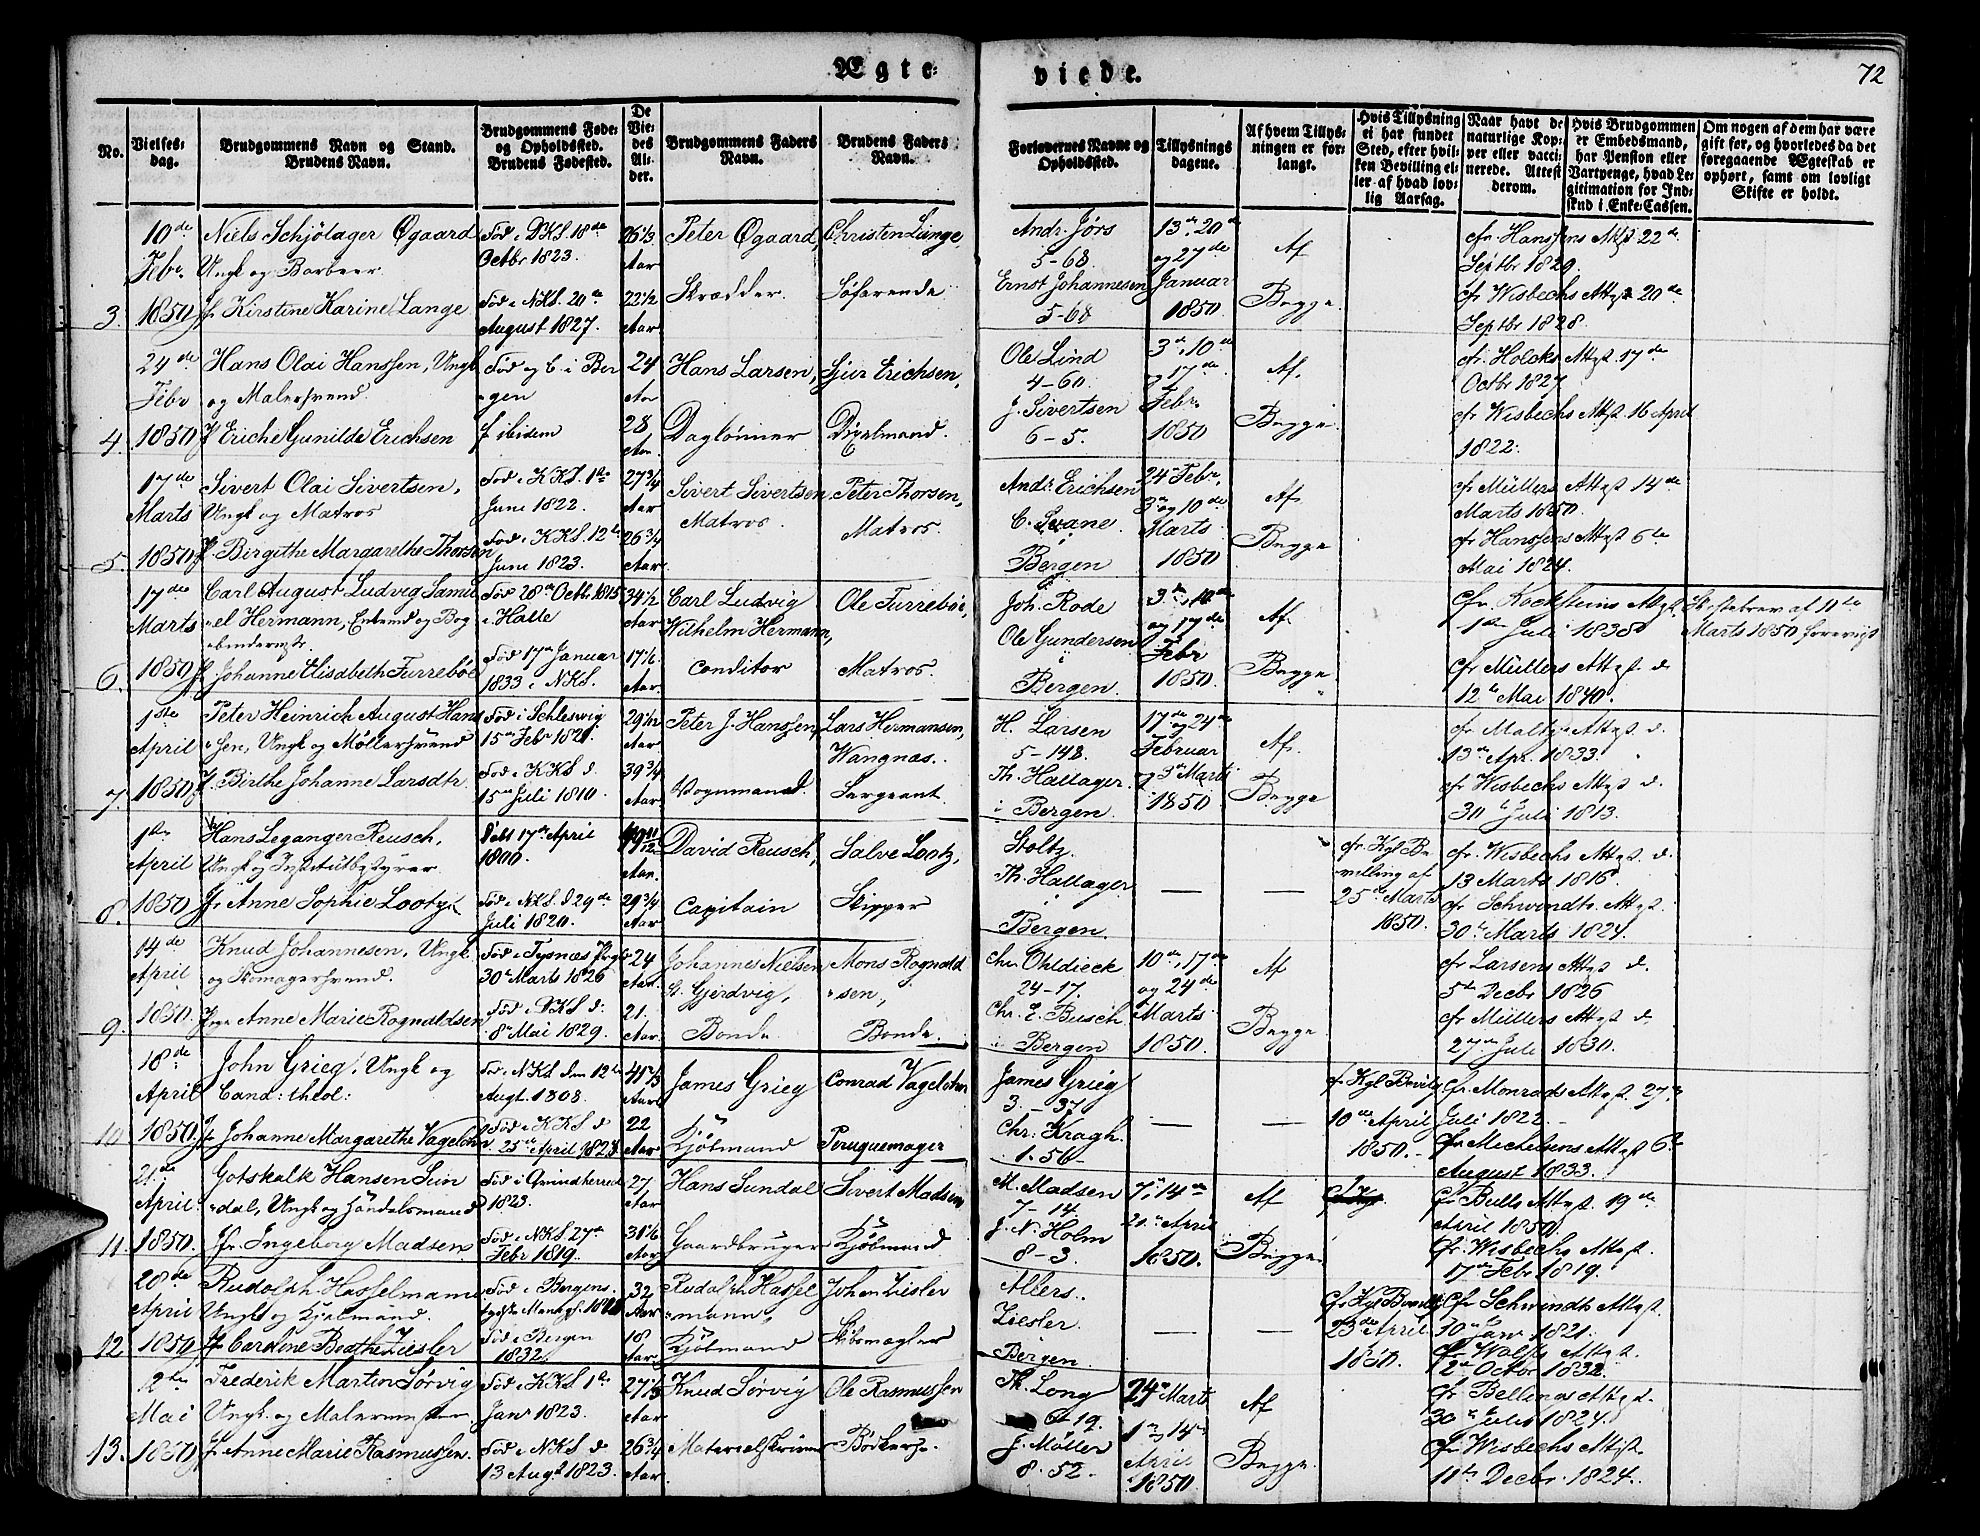 Ægte-
viede.
72
No.
Vielses-
dag.
Brudgommens Navn og Stand.
Brudens Navn.
Brudgommens Føde-
og Opholdssted.
Brudens Fødested.
De
Vie-
des
Al-
der.
Brudgommens Faders
Navn.
Brudens Faders
Navn.
Forlovernes Navne og
Opholdssted.
Tillysnings
dagene.
Af hvem Tillys-
ningen er for-
langt.
Hvis Tillysning
ei har fundet
Sted, efter hvil-
ken Bevilling el-
ler af hvad lov-
lig Aarsag.
Naar havt de
naturlige Kop-
per eller vacci-
nerede. Attest
derom.
Hvis Brudgommen
er Embedsmand,
har Pension eller
Vartpenge, hvad Le-
gitimation for Ind-
skud i Enke-Cassen.
Om nogen af dem har være
gift før, og hvorledes da det
foregaaende Ægteskab er
ophørt, samt om lovligt
Skifte er holdt.
3.
10de
Febr.
1850
Niels Schjötager Øgaard
Ungk og Barbeer
Jf Kirstine Karine Lange
Föd i DKS. 18de
Octbr 1823.
Föd i NKS. 20de
August 1827.
26 1/3
Aar
22 1/2
Aar
Peter Øgaard
Skrædder.
Christen Lange,
Söfarende
Andr. Jörs
5-68.
Ernst Johannesen
5-68
13de 20de
og 27de
Januar
1850.
Af
Begge.
cfr Hanssens Attst 22de
Septbr 1829.
cfr Wisbechs Attst 20de
Septbr 1828.
4.
24de
Febr
1850
Hans Olai Hanssen, Ungk
og Malersvend.
Jf Eriche Gunilde Erichsen
Föd og C. i Ber
gen
f ibidem
24
Aar
28
Aar
Hans Larsen,
Daglönner
Sjur Erichsen,
Ole Lind
4-60.
J. Sivertsen
6-5.
3de, 10de
og 17de
Febr.
1850
Af.
Begge
cfr. Holcks Attst 17de
Octbr 1827
cfr Wisbechs Attst 16 April
1822.
5.
17de
Marts
1850
Sivert Olai Sivertsen,
Ungk og Matros
Jf. Birgithe Margarethe Thorsen
Föd i KKS. 1ste
Juni 1822.
Föd i KKS. 12te
Juni 1823.
27 3/4
Aar
26 3/4
Aar
Sivert Sivertsen
Matros.
Peter Thorsen,
Matros.
Andr. Erichsen
C. Svane
i
Bergen
24 Febr,
3de og 10de
Marts
1850
Af.
Begge
cfr Müllers Attst 14de
Marts 1850.
cfr Hanssens Attst 6te
Mai 1824.
6.
17de
Marts
1850
Carl August Ludvig Samu
el Hermann, Enkemd og Bog
bindermstr.
Jf Johanne Elisabeth Furreböe
Föd 28de Octbr 1815
i Halle
Föd 17de Januar
1833 i NKS.
34 1/2
Aar
Aar
Carl Ludvig
Wilhelm Hermann,
Conditor
Ole Furreböe,
Matros.
Joh. Rode
Ole Gundersen
i
Bergen.
3de, 10de
og 17de
Febr
1850.
Af.
Begge.
1ste Juli 1838
cfr Müllers Attst d.
12te Mai 1840.
Skiftebrev af 11te
Marts 1850 foreviist
7.
1ste
April
1850
Peter Heinrich August Hans
sen, Ungk og Möllersvend
Jf. Birthe Johanne Larsdtr.
Föd i Schleswig
15de Febr 1821.
Föd i KKS d.
15de Juli 1810.
29 1/12
Aar
39 3/4
Aar
Peter J. Hanssen,
Vognmand.
Lars Hermansen,
Wangnas.
Sergeant.
H. Larsen
5-148.
Th. Hallager
i Bergen.
17de og 24de
Februar
og 3de Marts
1850.
Af.
Begge
cfr Maltzes Attst d.
13de Apr. 1833.
cfr Wisbechs Attst d.
30te Juli 1813.
8.
1ste
April
1850
Hans Leganger Reusch,
Ungk og Institutbestyrer
Jfr Anne Sophie Lootz
Födt 17de April
1800.
Föd i NKS. d 29de
Juli 1820.
49 11/12
Aar.
29 3/4
Aar
David Reusch,
Capitain
Salve Lootz,
Skipper
Stoltz.
Th. Hallager
i
Bergen.
cfr. Kgl Be
villing af
25de Marts
1850.
cfr. Wisbechs Attst. d.
13 Marts 1816.
cfr Schwindts Attst.
30te Marts 1824.
9.
14de
April
1850.
Knud Johannesen, Ungk.
og Skomagersvend.
Pige Anne Marie Rognaldsen
Föd i Tysnæs Prgj
30te Marts 1826
Föd i DKS d.
8de Mai 1829.
24
Aar.
21.
Aar.
Johannes Nielsen
Gjerdvig,
Bonde
Mons Rognald
sen,
Bonde.
Chr. Ohldieck
24-17.
Chr. E. Busch
i Bergen
10de, 17de
og 24de
Marts
1850.
Af
Begge
cfr Larsens Attst d.
5te Decbr 1826
cfr Müllers Attst d.
27de Juli 1830.
10
18de
April
1850.
John Grieg, Ungk og
Cand: theol:
Jf Johanne Margarethe Vagelohn
Föd i NKS den 12te
Augt. 1808.
Föd i KKS d
25de April 1828
41 2/3
Aar
22
Aar
James Grieg
Kjöbmand
Conrad Vagelohn
Peruquemager
James Grieg
3.-37
Chr. Kragh.
1.56-
cfr Kgl Bevillg
10de April
1850.
cfr. Monrads Attst. 27de
Juli 1822.
cfr Michelsens Attst 6te
August 1833.
11
21de
April
1850.
Gotskalk Hansen Sun
dal, Ungk og Handelsmand
Jfr. Ingeborg Madsen
Föd i Qvindherred
1823.
Föd i NKS. 27de
Febr 1819.
27
Aar
31 1/6
Aar
Hans Sundal
Gaardbruger
Sivert Madsen
Kjöbmand
M. Madsen
7-14.
J. N. Holm
8-3.
7de, 14de
21de April
1850.
Af
Begge
cfr Bulls Attst. 19de
April 1850.
cfr. Wisbechs Attst.
17de Febr 1819.
12
28de
April
1850
Rudolph Hasselmann
Ungk. og Kjöbmand.
Jfr Caroline Beathe Ziesler
Föd i Bergens
tydske Menigh.
Föd i Bergen
1832.
32
Aar
18
Aar.
Rudolph Hassel
mann,
Kjöbmand
Johan Ziesler
Skibsmægler
Allers.
Ziesler.
Bergen.
cfr Kgl Bevillg
23de April
1850.
cfr Schwindts Attst.
30te Janr 1821.
cfr. Wolffs Attst.
12te Octbr 1832.
13.
12te
Mai
1850
Frederik Martin Sörvig
Ungk. og Malermester
Jf. Anne Marie Rasmussen.
Föd i KKS 1ste
Janr 1823.
Föd i NKS d
13 Augt 1823.
27 1/3
Aar
26 3/4
Aar.
Knud Sörvig
Ole Rasmussen
Th. Long
19.
J. Möller
8.52.
24de Marts
1ste og 14de
April
1850.
Af
Begge.
cfr Bellings Attst.
30te Juli 1824.
cfr Wisbechs Attst.
11te Decbr. 1824.